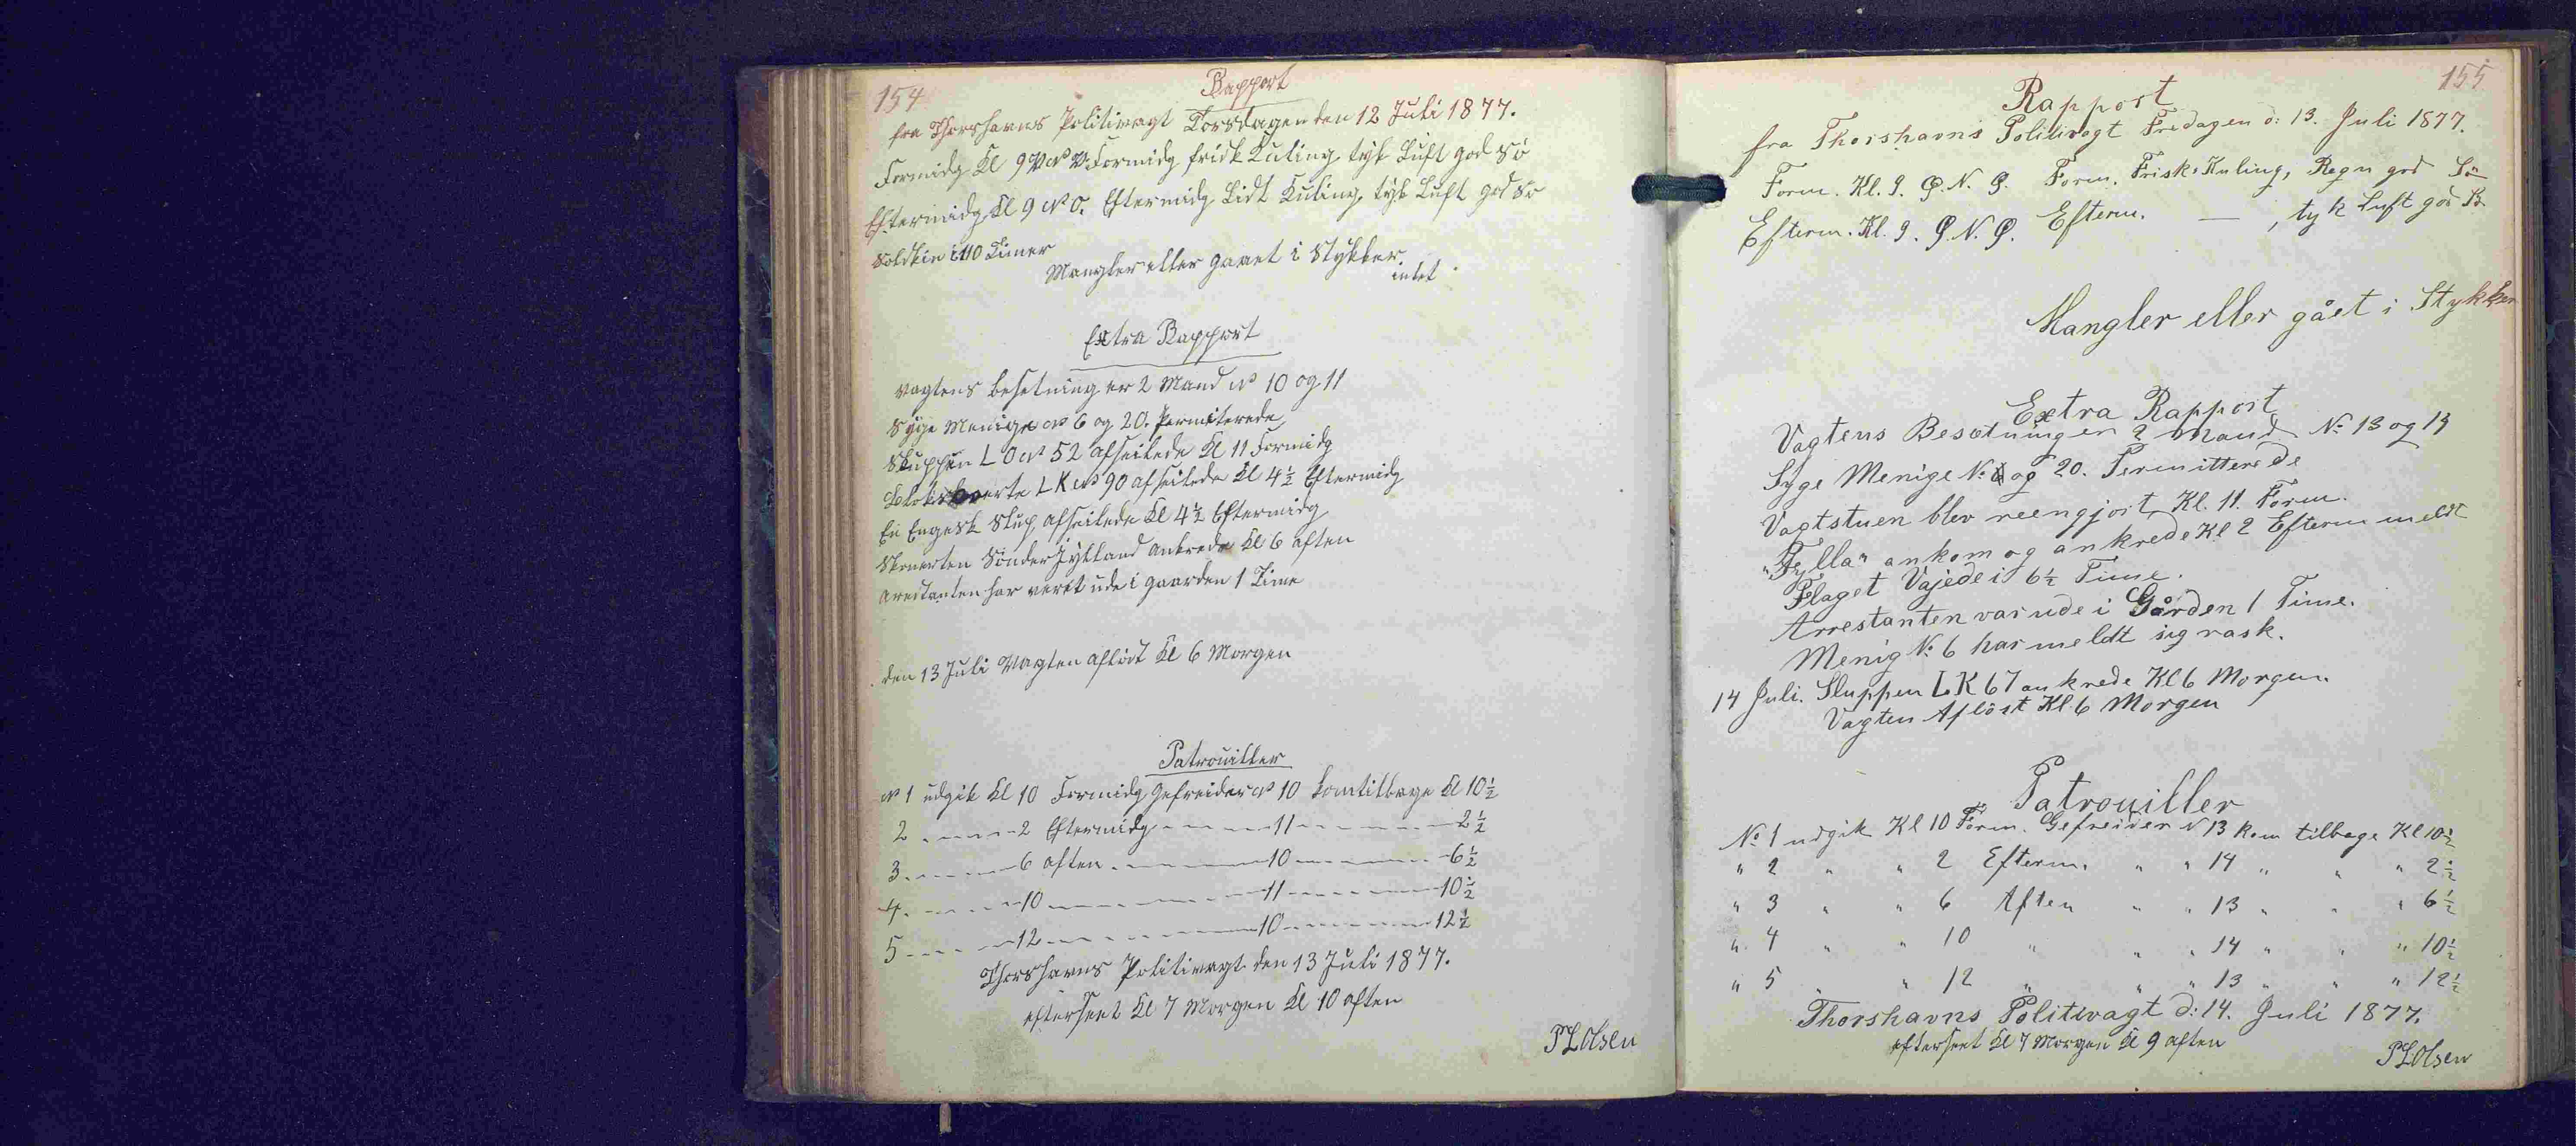 154
Rapport
fra Thorshavns Politivagt Torsdagen den 12 Juli 1877.
Formidg Kl 9 V N V. Formidg frisk Kuling tyk Luft god Sö
Eftermidg Kl 9 N O. Eftermidg Lidt Kuling, tyk Luft god Sö
Soldskin i 10 Timer
Mangler eller gaaet i Stykker
intet.
Extra Rapport
Vagtens besetning er 2 Mand No 10 og 11
Syge Menige No 6 og 20. Permiterede
Sluppen L O No 52 afseilede Kl 11 Formidg
LK No 90 afseilede Kl 4½ Eftermidg
En Engesk Slup afseilede Kl 4½ Eftermidg
Skonerten Sönder Jylland Ankrede Kl 6 aften
Arestanten har verit ude i gaarden 1 Time
den 13 Juli Vagten aflöst Kl 6 Morgen
Patrouiller
No 1 udgik Kl 10 Formidg Gefreider No 10 komtilbage Kl 10½
2 - - - - - 2 Eftermidg - - - - - 11 - - - - - 2½
3 - - - - - 6 aften - - - - - 10 - - - - - 6½
4 - - - - - 10 - - - - - 11 - - - - - 10½
5 - - - - - 12 - - - - - 10 - - - - - 12½
Thorshavns Politivagt den 13 Juli 1877.
efterseet Kl 7 Morgen Kl 10 aften
P L Olsen
155
Rapport
fra Thorshavns Politivagt Fredagen d: 13. Juli 1877.
Form. Kl. 9. O. N. O. Form. Frisk Kuling, Regn god Sö
Efterm. Kl. 9. O. N. O. Efterm. — , tyk Luft god Sö
Mangler eller gået i Stykker
Extra Rapport
Vagtens Besætning er 2 Mand No 13 og 14
Syge Menige No 6 og 20. Permitterede
Vagtstuen blev reengjort Kl. 11. Form.
"Fylla" ankom og ankrede Kl 2 Efterm meldt
Flaget Vajede i 6½ Time.
Arrestanten var ude i Gården 1 Time.
Menig No 6 har meldt sig rask.
14 Juli. Sluppen LK 67 ankrede Kl 6 Morgen.
Vagten Aflöst Kl 6 Morgen
Patrouiller
No 1 udgik Kl 10 Form. Gefreider N 13 kom tilbage Kl 10½
" 2 " " 2 Efterm. " " 14 " " " 2½
" 3 " " 6 Aften " " 13 " " " 6½
" 4 " " 10 " " " 14 " " " 10½
" 5 " " 12 " " " 13 " " " 12½
Thorshavns Politivagt d: 14. Juli 1877.
efterseet Kl 7 Morgen Kl 9 aften
P L Olsen